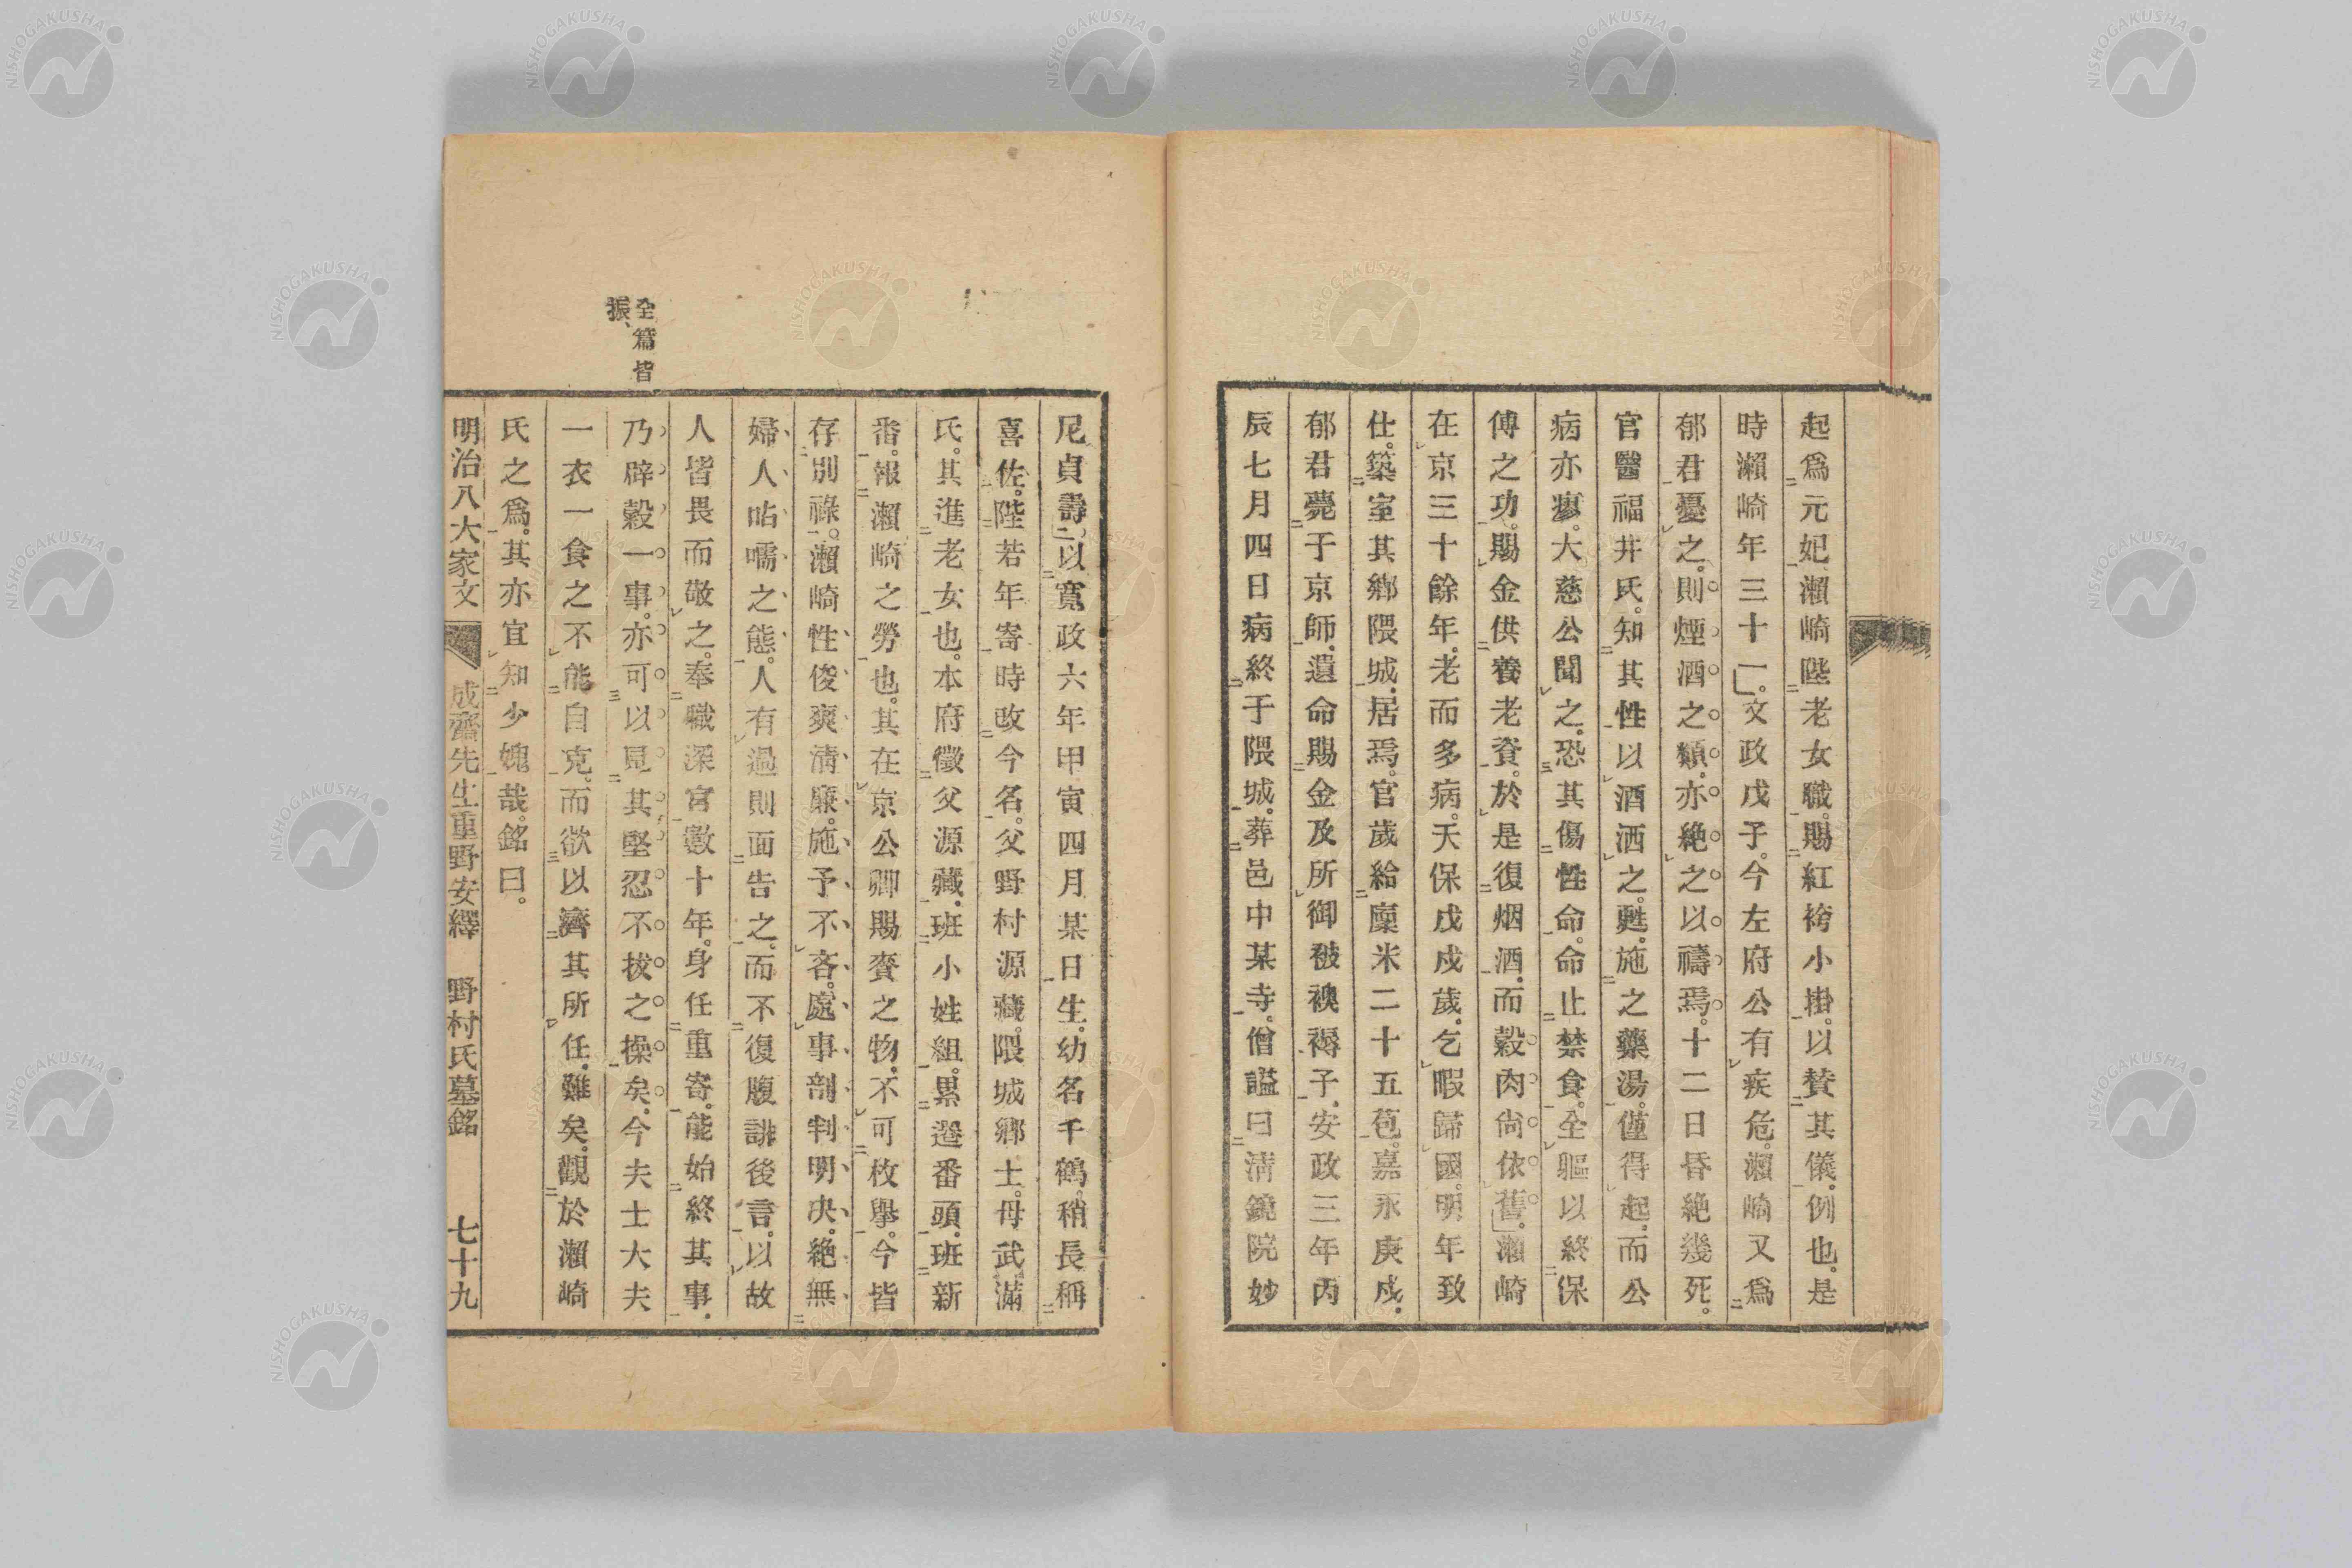 起爲元妃瀨崎陞老女職。賜紅袴小掛。以贊其儀。例也。是
時瀨崎年三十一。文政戊子。今左府公有疾危。瀨崎又爲
郁君憂之。則煙酒之類。亦絶之以禱焉。十二日昏絶幾死。
官醫福井氏。知其性以酒洒之。甦。施之藥湯。僅得起。而公
病亦瘳。大慈公聞之。恐其傷性命。命止禁食。全軀以終保
傅之功。賜金供養老資。於是復烟酒。而穀肉尙依舊。瀨崎
在京三十餘年。老而多病。天保戊戌歲。乞暇歸國。明年致
仕。築室其鄕隈城。居焉。官歲給廩米二十五苞。嘉永庚戌。
郁君薨于京師。遺命賜金及所御被襖褥子。安政三年丙
辰七月四日病終于隈城。葬邑中某寺。僧謚曰淸鏡院妙
尼貞壽。以寬政六年甲寅四月某日生。幼名千鶴。稍長稱
喜佐。陞若年寄時改今名。父野村源藏。隈城鄕士。母武滿
氏。其進老女也。本府徵父源藏。班小姓組。累遷番頭。班新
番。報瀨崎之勞也。其在京公卿賜賚之物。不可枚擧。今皆
存別祿。瀨崎性俊爽淸廉。施予不吝。處事剖判明决。絶無
婦人呫嚅之態。人有過則面告之。而不復腹誹後言。以故
人皆畏而敬之。奉職深宮數十年。身任重寄。能始終其事。
全篇皆
振、
乃辟穀一事。亦可以見其堅忍不拔之操矣。今夫士大夫
一衣一食之不能自克。而欲以濟其所任。難矣。觀於瀨崎
氏之爲。其亦宜知少媿哉。銘曰。
明治八大家文 成齋先生重野安繹 野村氏墓銘 七十九
NISHOGAKUSHA